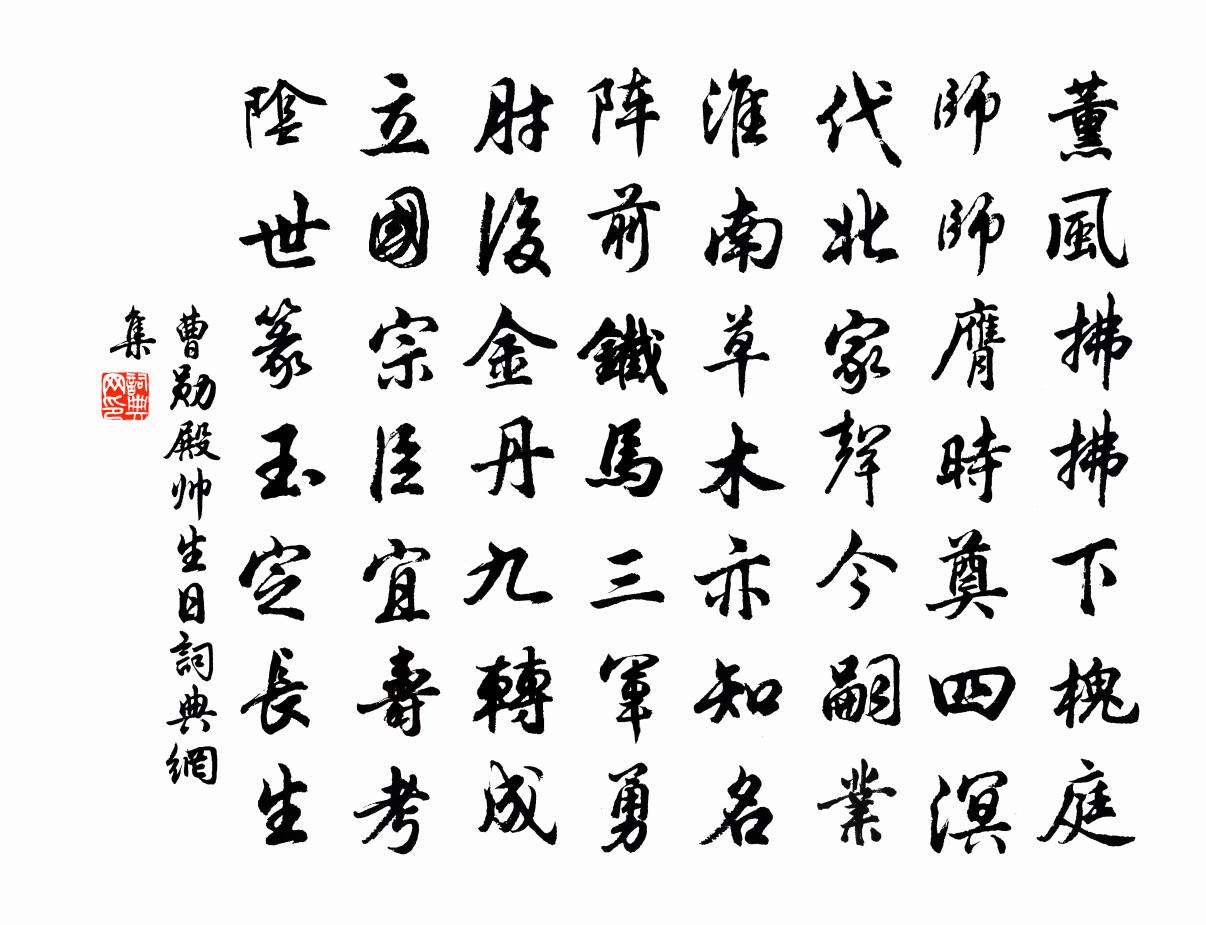 薰風拂拂下槐庭
師師膺時奠四溟
代北家聲今嗣業
淮南草木亦知名
陣前鐵馬三軍勇
肘後金丹九轉成
立國宗臣宜壽考
陰世篆玉定長生
曹勛殿帅生日詞典網
集
詞典
网印